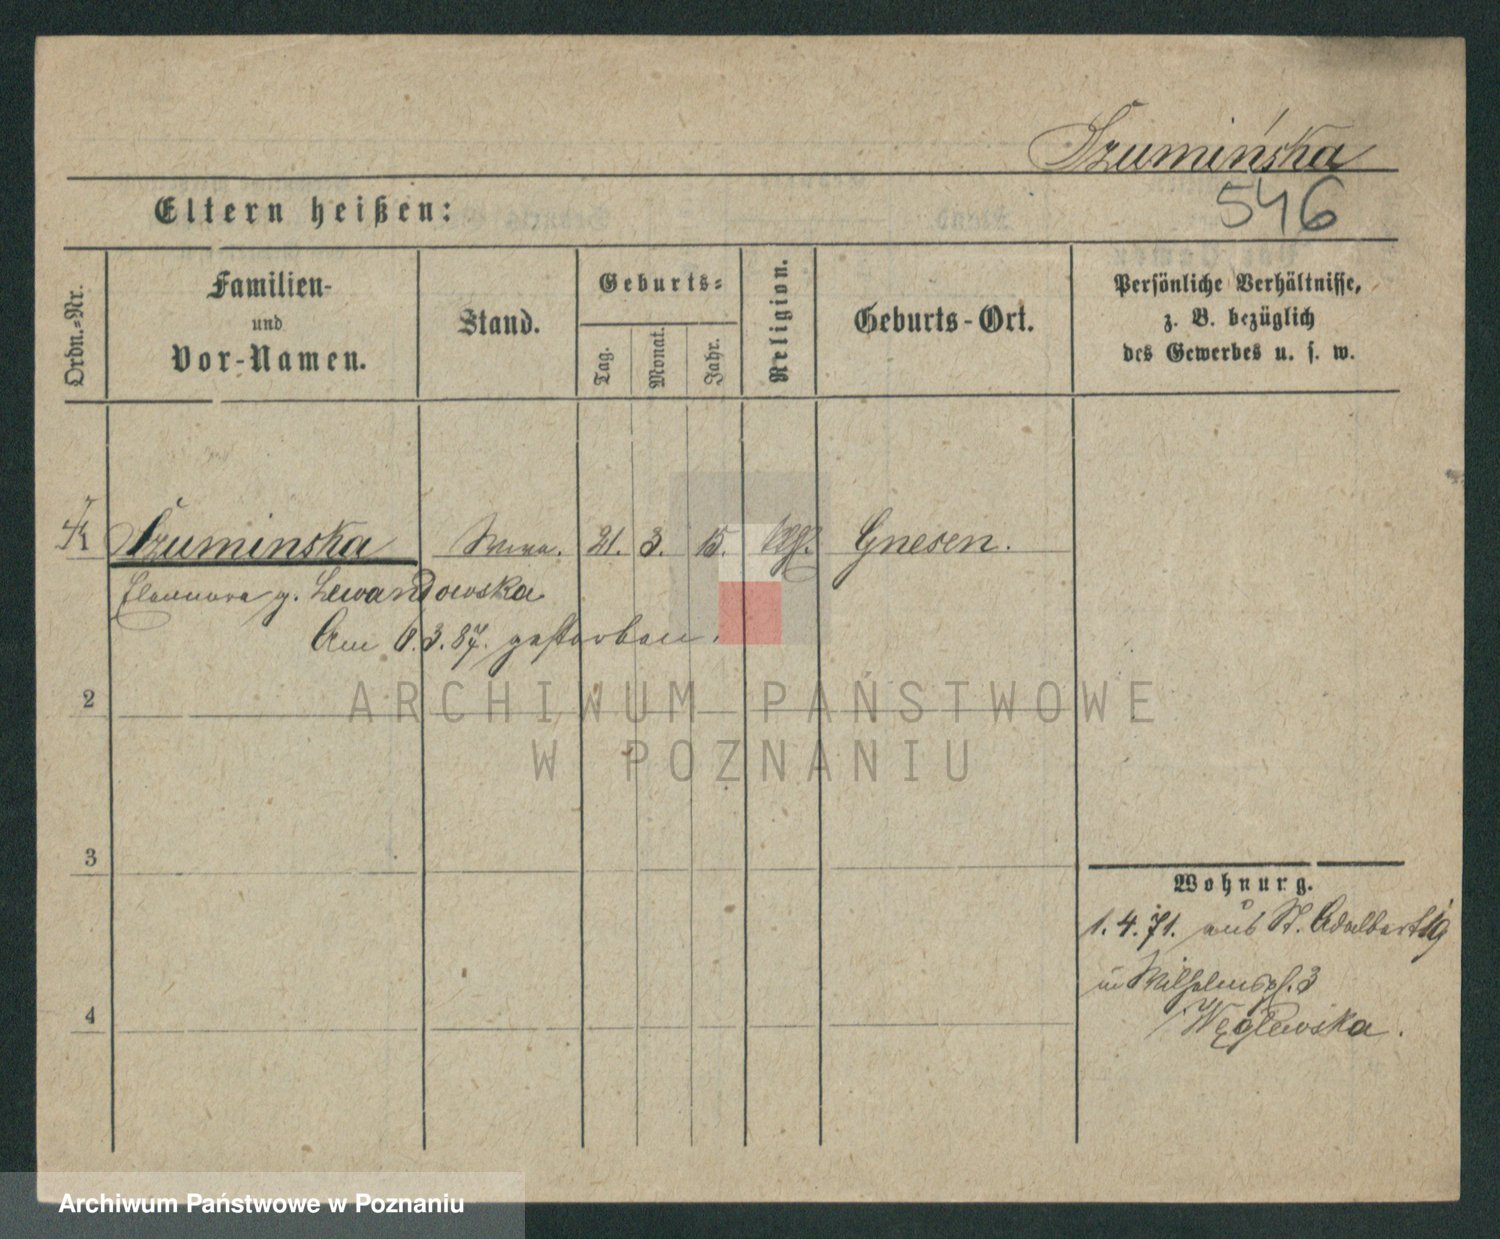 Szumińska
546
Eltern heißen:
Ordn.-Nr.
Familien-
und
Vor-Namen.
Stand.
Geburts-
Tag.
Monat.
Jahr.
Religion.
Geburts-Ort.
Persönliche Verhältnisse,
z. B. bezüglich
des Gewerbes u. s. w.
Szuminska 21. 3. 15. Gnesen.
g. Lewandowska
Am 3. 87. gestorben.
2
ARCHIWUM PAŃSTWOWE
W POZNANIU
3
Wohnung.
1. 4. 71. aus St. Adalbert 19
in Wilhelmspl. 3
Węglewska.
4
Archiwum Państwowe w Poznaniu